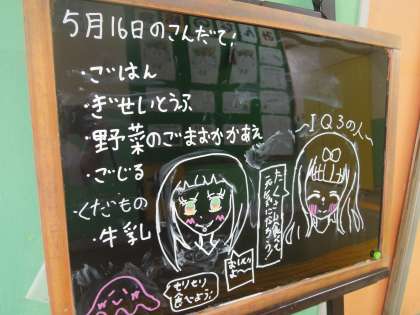 5月16日のこんだて!
・ごはん
・ぎせいとうふ
・野菜のごまむかかあえ
・ごじる
・くだもの
・牛乳
〜IQ3の人〜
たくさん食べて
元気になろう!
おいしい
よ〜
モリモリ
食べよう!